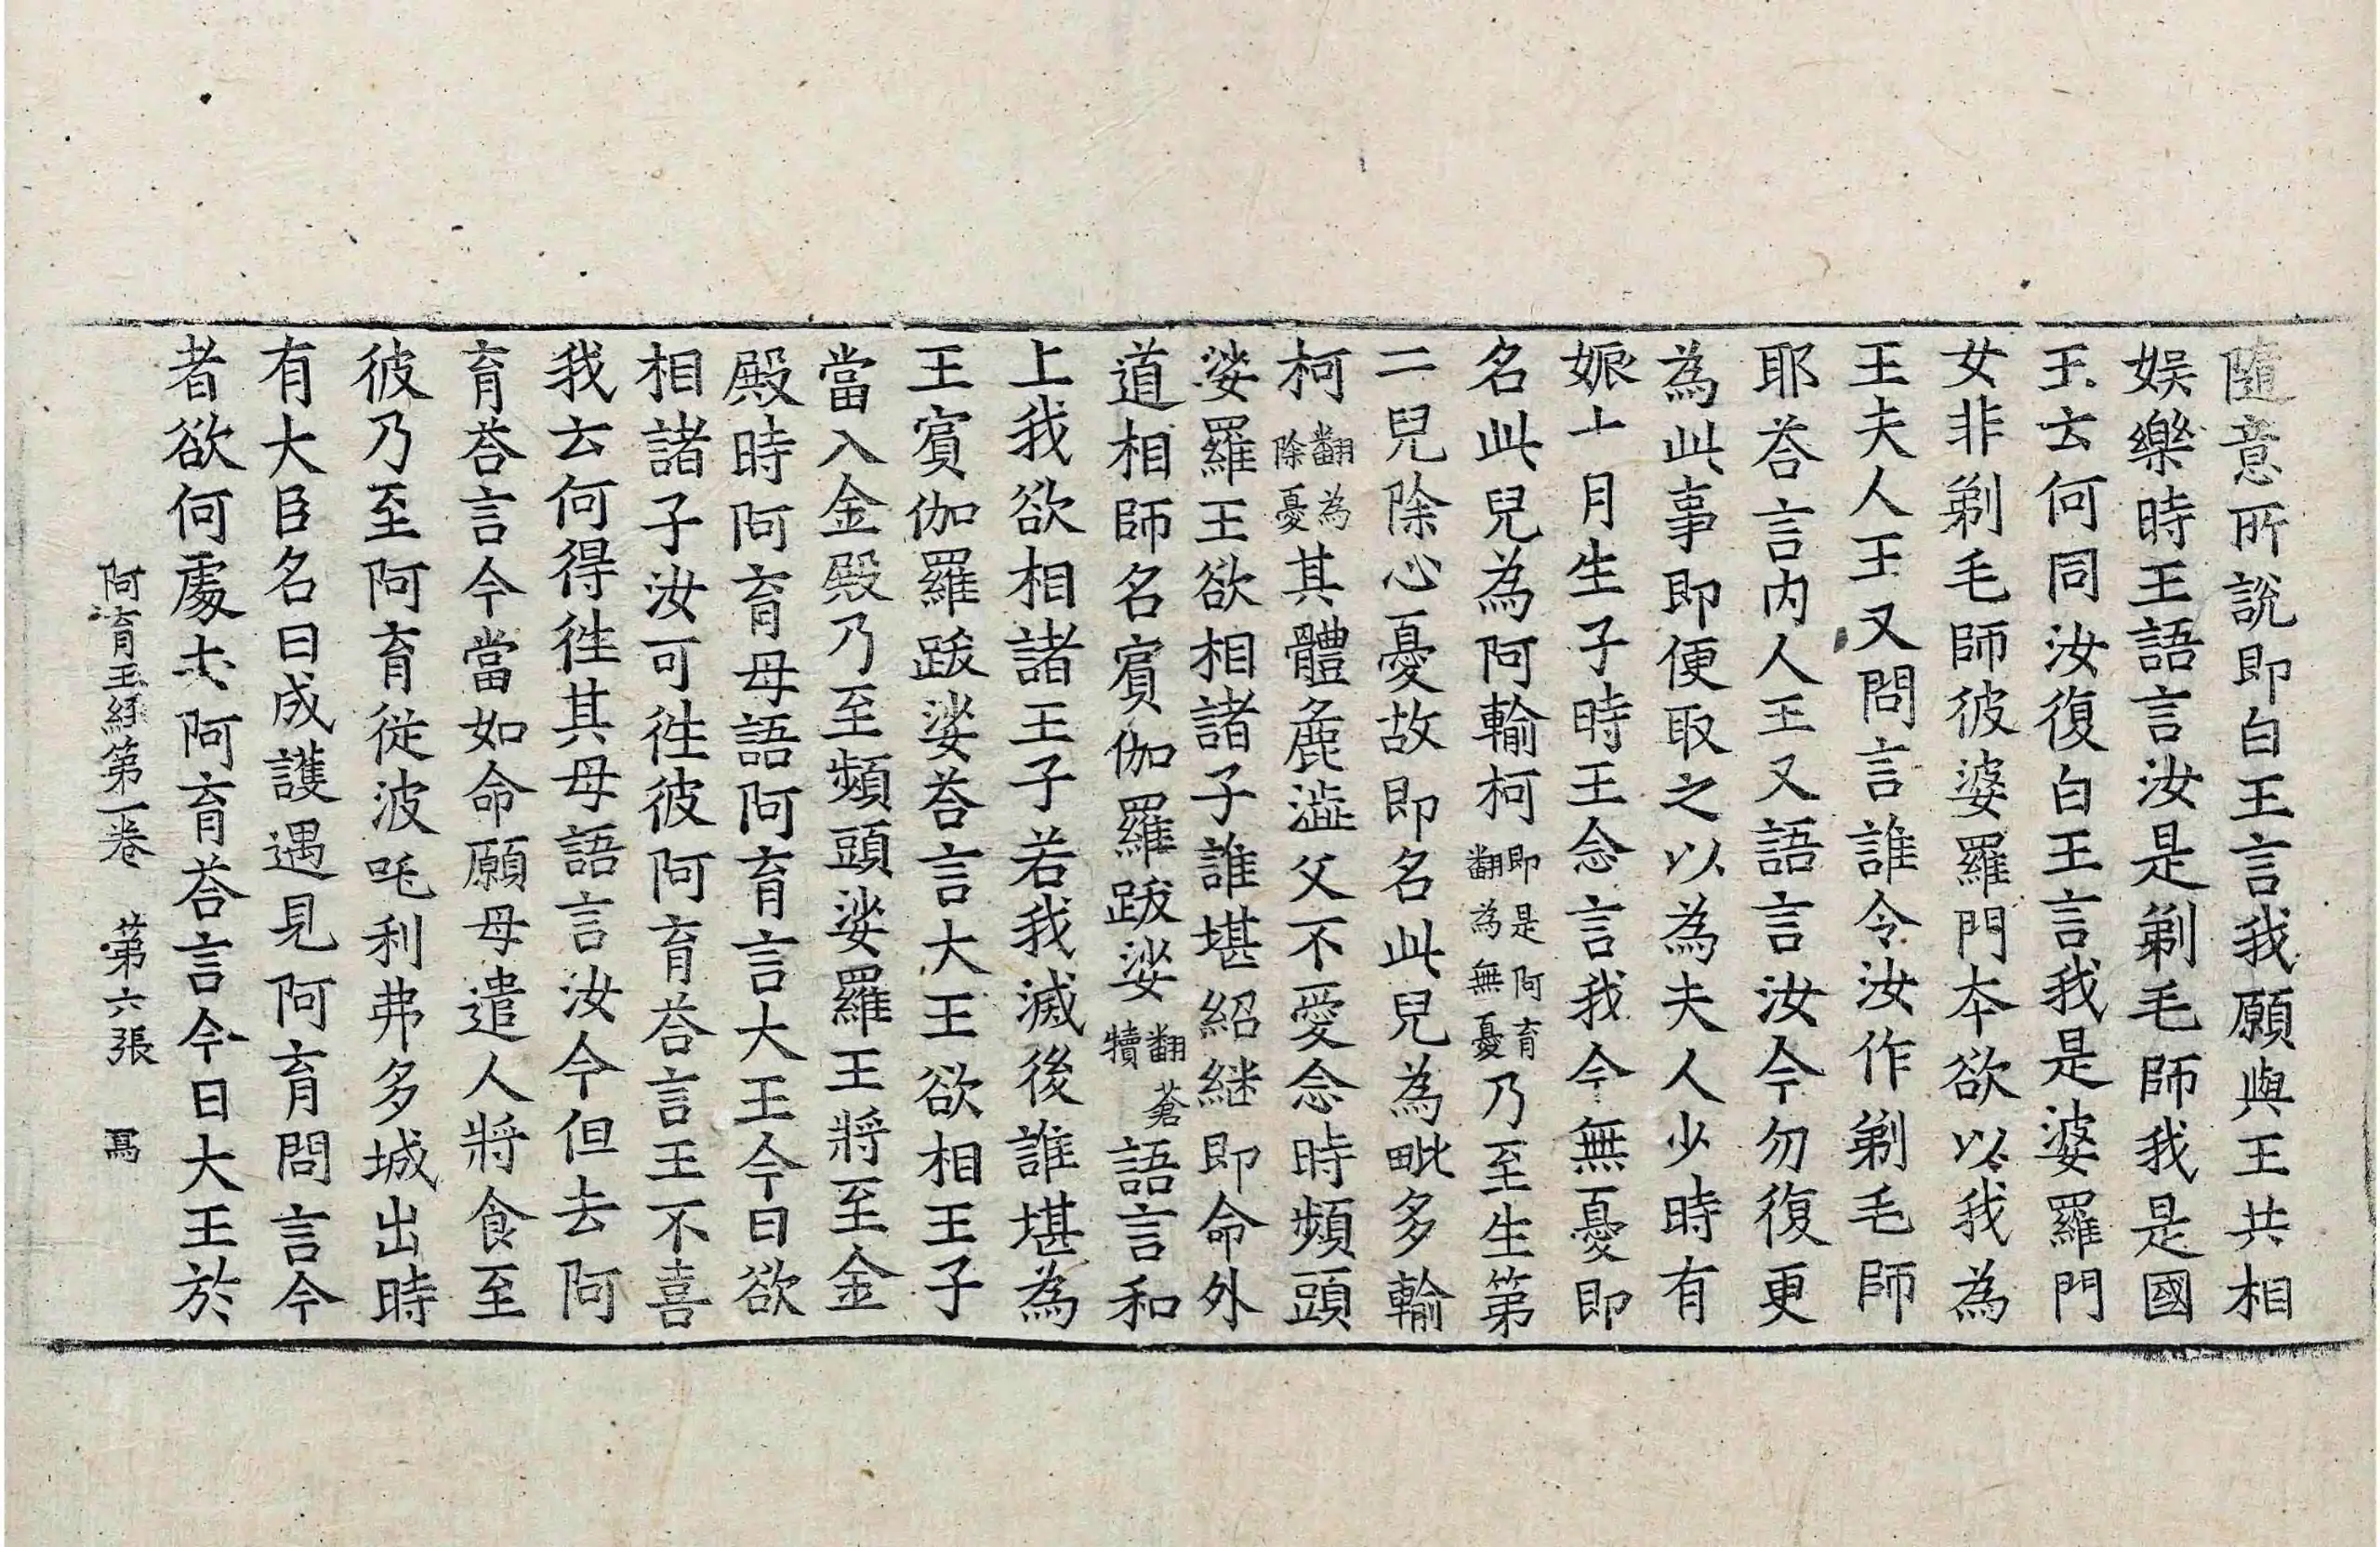 隨意所說即白王言我願與王共相
娛樂時王語言汝是剃毛師我是國
王云何同汝復白王言我是婆羅門
女非剃毛師彼婆羅門本欲以我為
王夫人王又問言誰令汝作剃毛師
耶荅言内人王又語言汝今勿復更
為此事即便取之以為夫人少時有
娠十月生子時王念言我今無憂即
名此兒為阿輸柯即是阿育翻為無憂乃至生第
二兒除心憂故即名此兒為毗多輸
柯翻為除憂其體麁澁父不愛念時頻頭
娑羅王欲相諸子誰堪紹継即命外
道相師名賓伽羅跋娑翻蒼犢語言和
上我欲相諸王子若我滅後誰堪為
王賓伽羅跋娑荅言大王欲相王子
當入金殿乃至頻頭娑羅王將至金
殿時阿育母語阿育言大王今日欲
相諸子汝可徃彼阿育荅言王不喜
我云何得徃其母語言汝今但去阿
育荅言今當如命願母遣人將食至
彼乃至阿育從波吒利弗多城出時
有大臣名曰成護遇見阿育問言今
者欲何處去阿育荅言今日大王於
阿育王経第一卷　第六張　冩